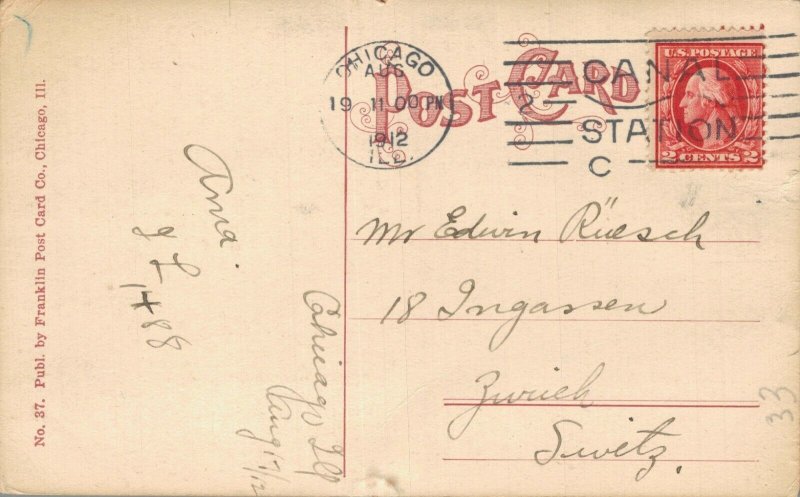 No. 37. Publ. by Franklin Post Card Co., Chicago, Ill.
POST CARD
CHICAGO
AUG
19 11 00 PM
1912
ILL.
2
CANAL
STATION
C
U.S. POSTAGE
2 CENTS 2
Mr Edwin Rüesch
18 Ingassen
Zürich
Switz.
Chicago Ill
Aug 17/12
1488
33